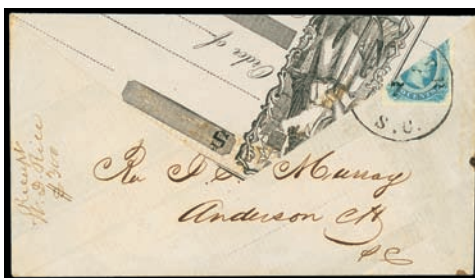 Order of
CENTS
S. C.
Rev J S Murray
Anderson CH
SC
Receipt
W. D. Rice
$300